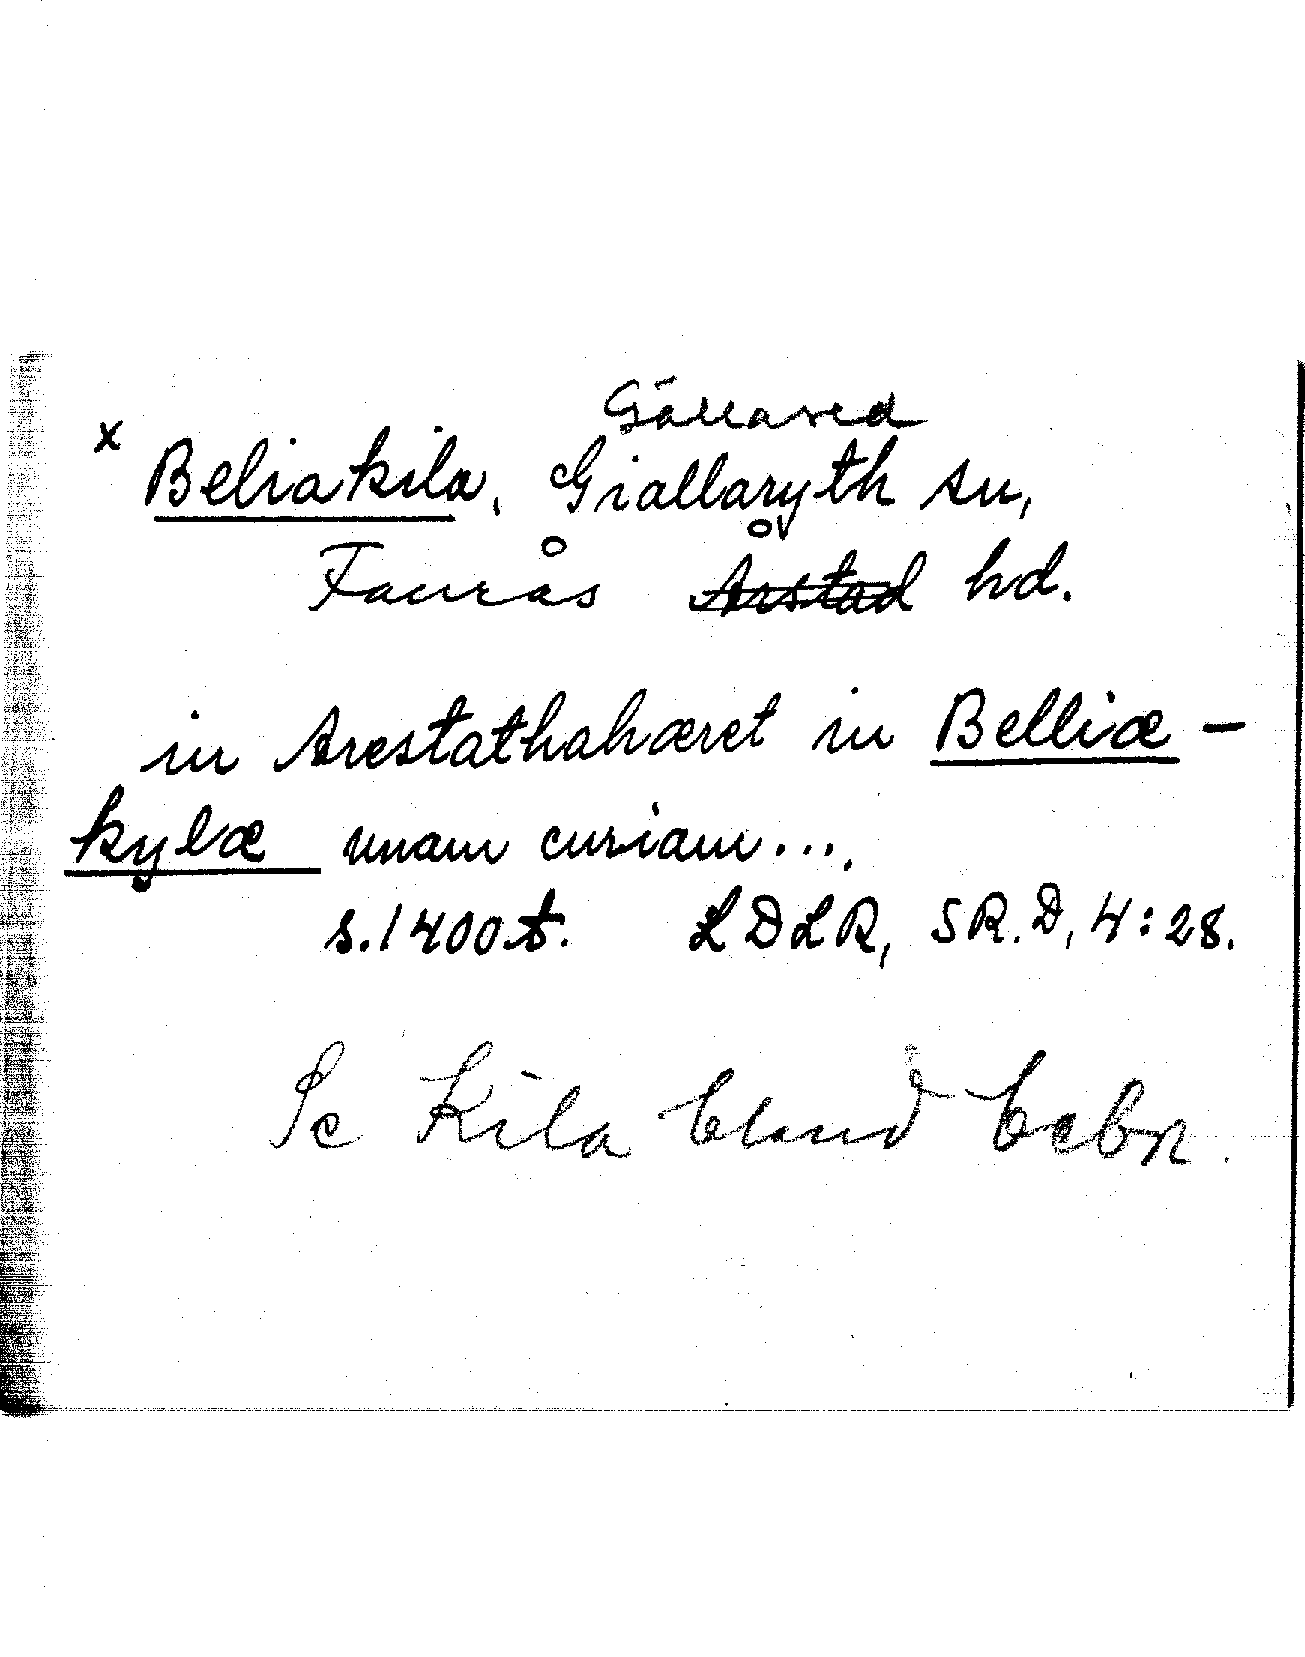 Gällared
x Beliakila, Giallaryth sn,
Faurås Årstad hd.
in Arestathahæret in Belliæ-
kylæ unam curiam...,
s.1400t. LDLR, SR.D, 4:28.
Se Kila bland bebn.